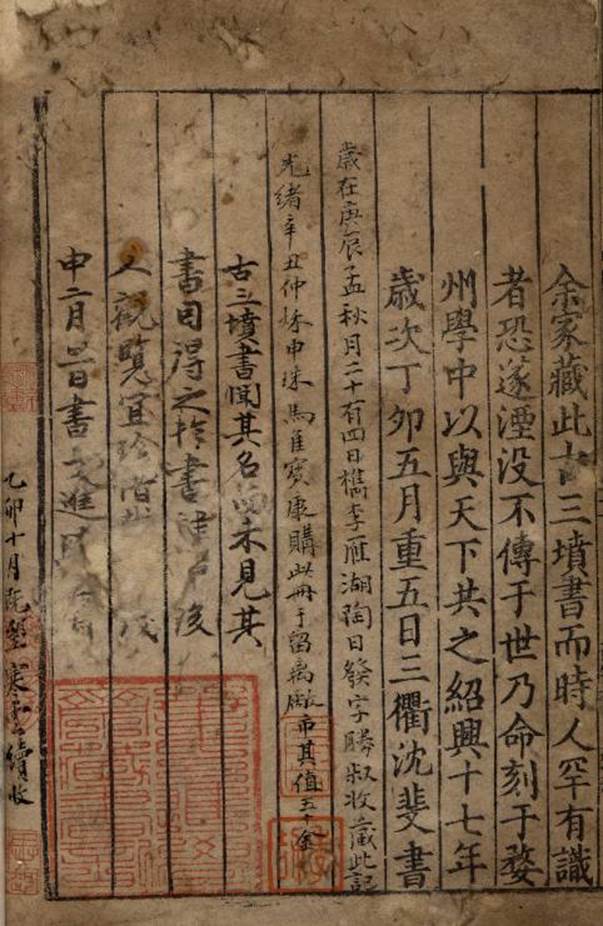 余家藏此古三墳書而時人罕有識
者恐遂湮没不傳于世乃命刻于婺
州學中以與天下共之紹興十七年
歲次丁卯五月重五日三衢沈斐書
歲在庚辰孟秋月二十有四日檇李雁湖陶日發字勝叔收藏此記
光緒辛丑仲秌申珠馬隹寶康購此冊于留禽廠市其值五十金
古三墳書聞其名而未見其
書因得之於書津戶後
人觀覽宜珍
申二月昔日書 進
乙卯十月 寒雲續收